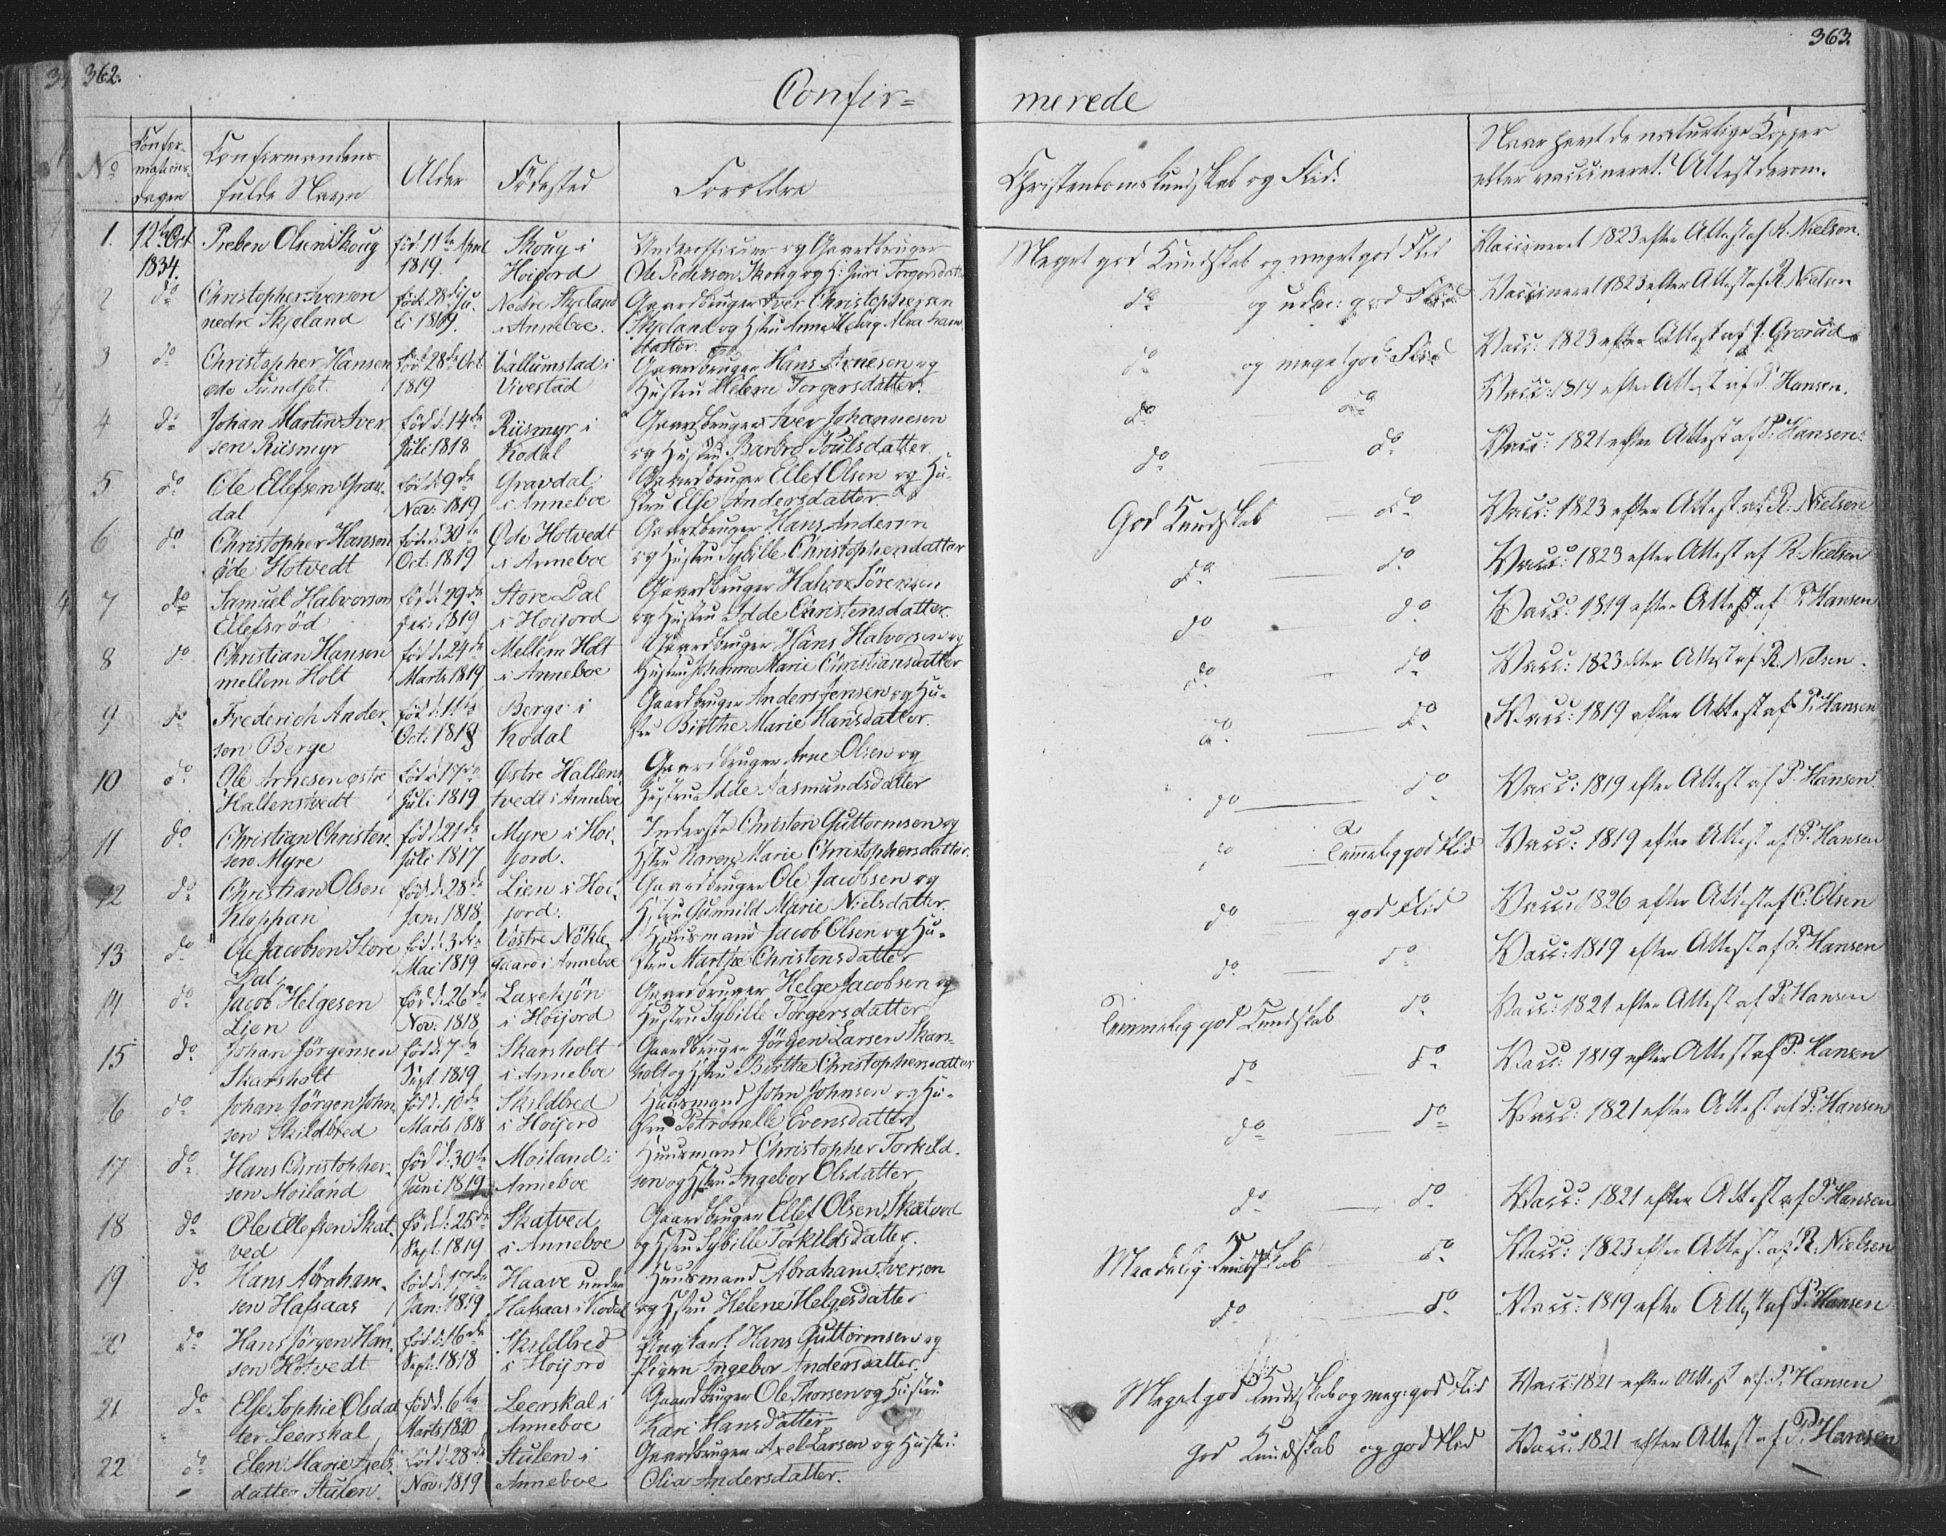 362.
363.
Confir=
merede
No
Confir-
mations-
dagen
Confirmandens
fulde Navn
Alder
Födested
Foreldre
Christendoms Kundskab og Flid.
Naar havt de naturlige Kopper
eller vaccineret? Attest derom.
1. 12te Oct 1834. Preben Olsen Skoug föd. 11te April 1819. Skoug i Hoijord Underofficier og Gaardbruger
Ole Pedersen Skoug og H: Guri Torgersdatter
Meget god Kundskab og meget god Flid Vaccineret 1823 efter Attest af R. Nielsen.
2 do Christopher Iversen nedre Skjeland föd. 28de Ju-li 1819. Nedre Skjeland i Anneboe. Gaardbruger Iver Christophersen
Skjeland og Hstru Anne Helvig Abraham-
datter.
do og udm: god Flid Vaccineret 1823 efter Attest af R. Nielsen
3 do Christopher Hansen öde Sundset. föd 28de Oct 1819 Vallumstad i Vivestad Gaardbruger Hans Arnesen og
Hustru Helene Torgersdatter.
do og meget god Flid Vacc: 1823 efter Attest af J. Grorud
4 do Johan Martin Iver sen Riismyr föd d. 14de Juli 1818 Riismyr i Kodal Gaardbruger Iver Johannesen
og Hustru Barbro Poulsdatter
do do Vacc: 1819 efter Attest af P. Hansen.
5 do Ole Ellefsen Grav-dal föd d: 9de Nov: 1819 Gravdal i Anneboe Gaardbruger Ellef Olsen og Hu-
stru Else Andersdatter
do do Vacc: 1821 efter Attest af P. Hansen.
6 do Christopher Hansen öde Hotvedt föd d: 30te Oct. 1819 Öde Hotvedt i Anneboe Gaardbruger Hans Andersen
og Hustru Sybille Christophersdatter
God Kundskab do Vacc: 1823 efter Attest af R. Nielsen
7 do Samuel Halvorsen Ellefsröd föd d: 29de Dec: 1819 Store Dal i Hoijord Gaardbruger Halvor Sörensen
og Hustru Idde Christensdatter.
do do Vacc: 1823 efter Attest af R. Nielsen
8 do Christian Hansen mellem Holt föd d: 29de Marts 1819 Mellem Holt i Anneboe Gaardbruger Hans Halvorsen og
Hustru Johanne Marie Christiansdatter
do do Vacc: 1819 efter Attest af P. Hansen
9 do Frederich Ander-sen Berge föd d: 11te Oct: 1818 Berge i Kodal Gaardbruger Anders Jensen og Hu-
stru Birthe Marie Hansdatter.
do do Vacc: 1823 efter Attest af R. Nielsen.
10 do Ole Arnesen östre Hallenstvedt föd d: 17de Juli 1819 Östre Hallens tvedt i Anneboe Gaardbruger Arne Olsen og
Hustru Idde Aasmundsdatter
do do Vacc: 1819 efter Attest af P. Hansen
11 do Christian Christen-sen Myre föd d: 21de Juli 1817 Myre i Hoi-jord. Inderste Christen Guttormsen og
Hstru Karren Marie Christophersdatter.
do do Vacc: 1819 efter Attest af P. Hansen.
12 do Christian Olsen Kloppan föd d: 28de Jan: 1818 Lien i Hoi-jord. Gaardbruger Ole Jacobsen og
Hstru Gunnild Marie Nielsdatter
do Temmelig god Flid Vacc: 1819 efter Attest af P. Hansen
13 do Ole Jacobsen Store Dal föd d. 3die Mai 1819 Vestre Nöhle-gaard i Anneboe Huusmand Jacob Olsen og Hu-
stru Marthe Christensdatter
do god Flid Vacc: 1826 efter Attest af C. Olsen
14 do Jacob Helgesen Lien föd d: 26de Nov: 1818 Laxekjön i Hoijord Gaardbruger Helge Jacobsen og
Hustru Sybille Torgersdatter
do do Vacc: 1819 efter Attest af P. Hansen
15 do Johan Jörgensen Skarsholt föd d: 7de Sept 1819 Skarsholt i Anneboe Gaardbruger Jörgen Larsen Skars-
holt og Hstru Birthe Christophersdatter
Temmelig god Kundskab do Vacc: 1821 efter Attest af P. Hansen
16 do Johan Jörgen John-sen Skildbred föd d. 10de Marts 1818 Skildbred i Hoijord Huusmand John Johnsen og Hu-
stru Petronelle Evensdatter
do do Vacc: 1819 efter Attest af P. Hansen
17 do Hans Christopher-sen Moiland föd d: 30te Juni 1819 Moiland i Anneboe Huusmand Christopher Torkild-
sen og Hstru Ingebor Olsdatter
do do Vacc: 1821 efter Attest af P. Hansen
18 do Ole Ellefsen Skat-ved föd d: 25de Sept: 1819 Skatved i Anneboe Gaardbruger Ellef Olsen Skatved
og Hstru Sybille Torkildsdatter.
do do Vacc: 1821 efter Attest af P. Hansen
19 do Hans Abraham-sen Hafsaas föd d: 17de Jan: 1819 Haave under Hafsaas i Kodal Huusmand Abraham Iversen
og Hstru Helene Helgesdatter
Maadelig Kundskab do Vacc: 1823 efter Attest af R. Nielsen
20 do Hans Jörgen Han-sen Hotvedt föd d: 16de Sept: 1818 Skildbred i Hoijord Ungkarl Hans Guttormsen og
Pigen Ingebor Andersdatter.
do do Vacc: 1819 efter Attest af P. Hansen
21 do Else Sophie Olsdat ter Leerskal föd d: 6te Marts 1820 Leerskal i Anneboe Gaardbruger Ole Thorsen og Hustru
Kari Hansdatter
Meget god Kundskab og meg: god Flid Vacc: 1821 efter Attest af P. Hansen
22 do Elen Marie Axels-datter Stulen. föd d: 28de Nov: 1819 Stulen i Anneboe Gaardbruger Axel Larsen og Hustru
Olia Andersdatter.
God Kundskab og god Flid Vacc: 1821 efter Attest af P. Hansen